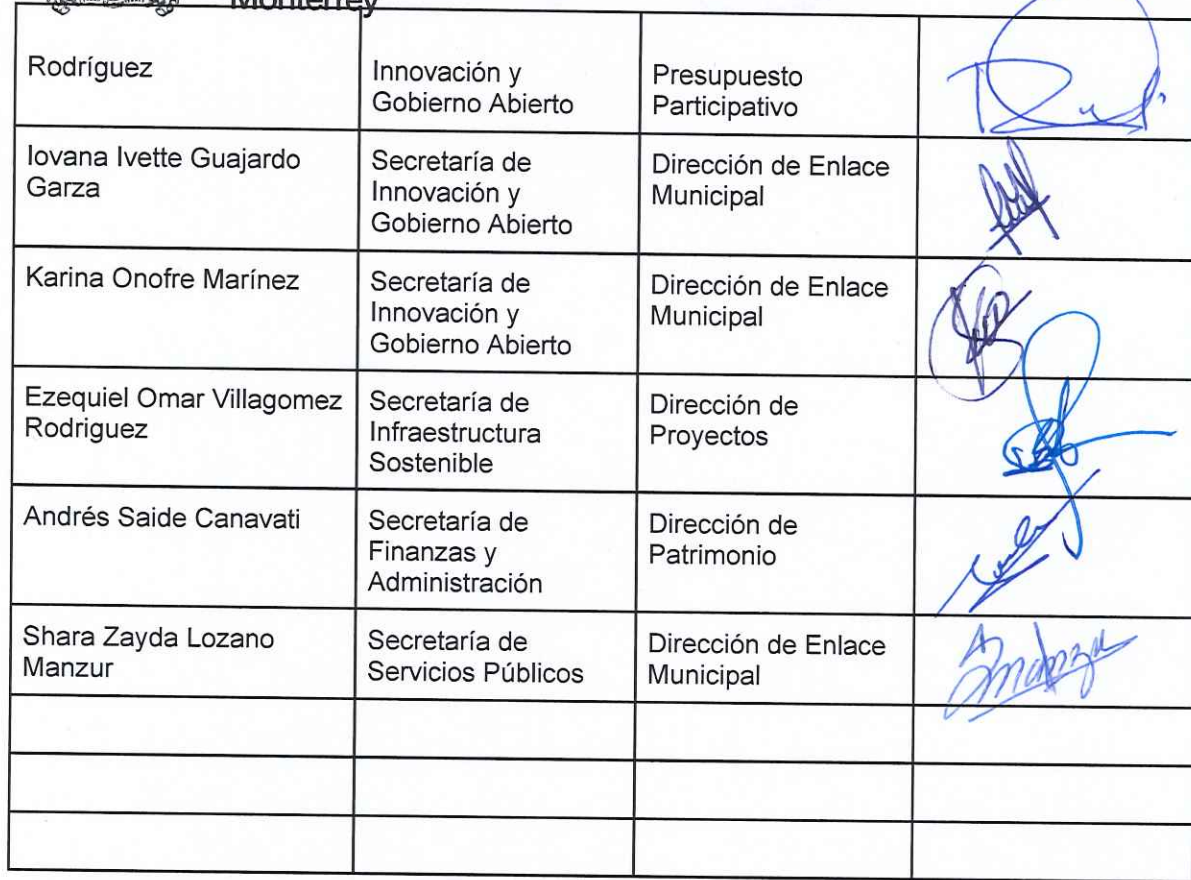 Monterrey
Rodríguez
Innovación y
Gobierno Abierto
Presupuesto
Participativo
Iovana Ivette Guajardo
Garza
Secretaría de
Innovación y
Gobierno Abierto
Dirección de Enlace
Municipal
Karina Onofre Marínez
Secretaría de
Innovación y
Gobierno Abierto
Dirección de Enlace
Municipal
Ezequiel Omar Villagomez
Rodriguez
Secretaría de
Infraestructura
Sostenible
Dirección de
Proyectos
Andrés Saide Canavati
Secretaría de
Finanzas y
Administración
Dirección de
Patrimonio
Shara Zayda Lozano
Manzur
Secretaría de
Servicios Públicos
Dirección de Enlace
Municipal